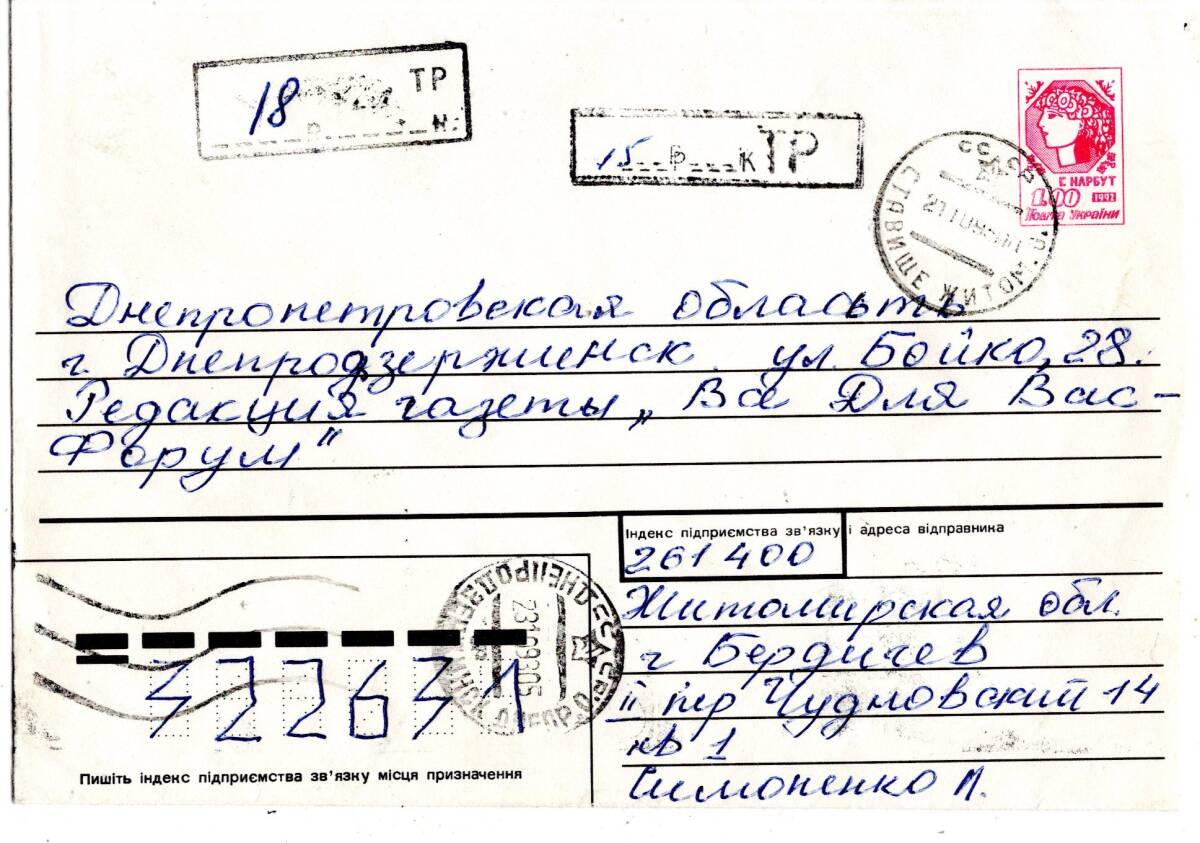 18 ТР
15 Б К ТР
Г. НАРБУТ
1.00 1992
Пошта України
СТАВИЩЕ ЖИТОМ.
Днепропетровская обласьть
г. Днепродзержинск ул. Бойко, 28.
Редакция газеты „Ва Для Вас-
Форум"
Індекс підприємства зв'язку і адреса відправника
261400
Житомирская обл.
г Бердичев
II пер Чудновский 14
кв 1
Симоненко Л.
322631
Пишіть індекс підприємства зв'язку місця призначення